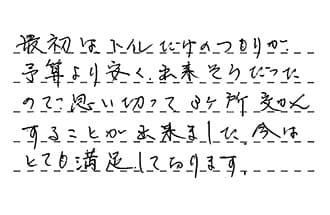 最初はトイレだけのつもりが、
予算より安く出来そうだった
ので思い切って3ヶ所交かん
することが出来ました。今は
とても満足しております。